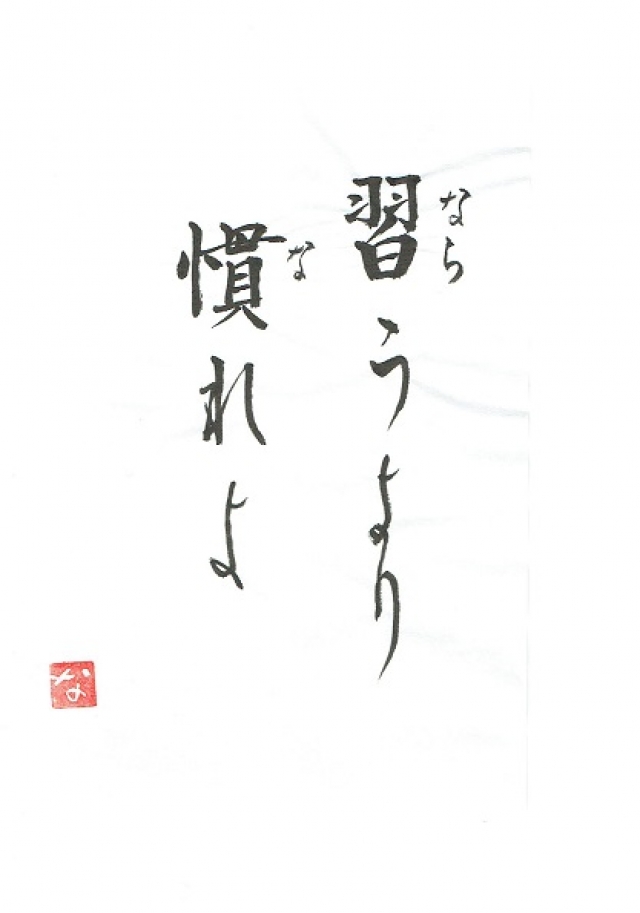 習うより
なら
慣れよ
な
な